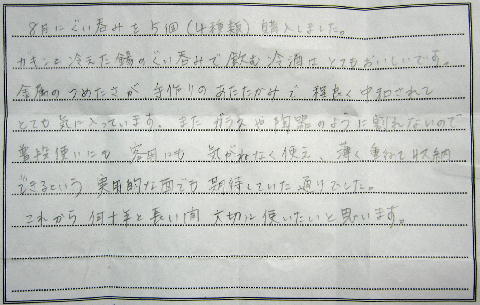 8月にぐい呑みを5個(4種類)購入しました。
ガキンと冷えた錫のぐい呑みで飲む冷酒はとてもおいしいです。
金属のつめたさが手作りのあたたかみで程良く中和されて
とても気に入っています。またガラスや陶器のように割れないので
普段使いにも客用にも気がねなく使え、薄く重ねて収納
できるという実用的な面でも期待していた通りでした。
これから何十年と長い間大切に使いたいと思います。